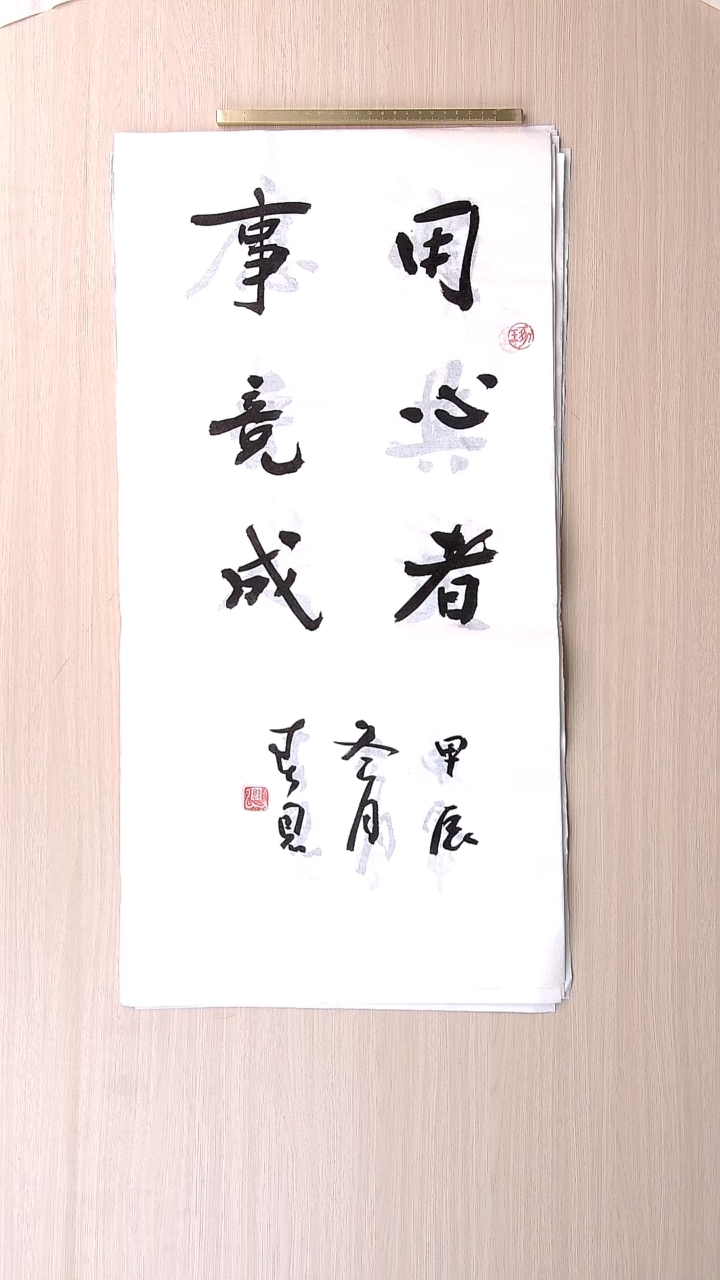 用心者
事竟成
甲辰
冬月